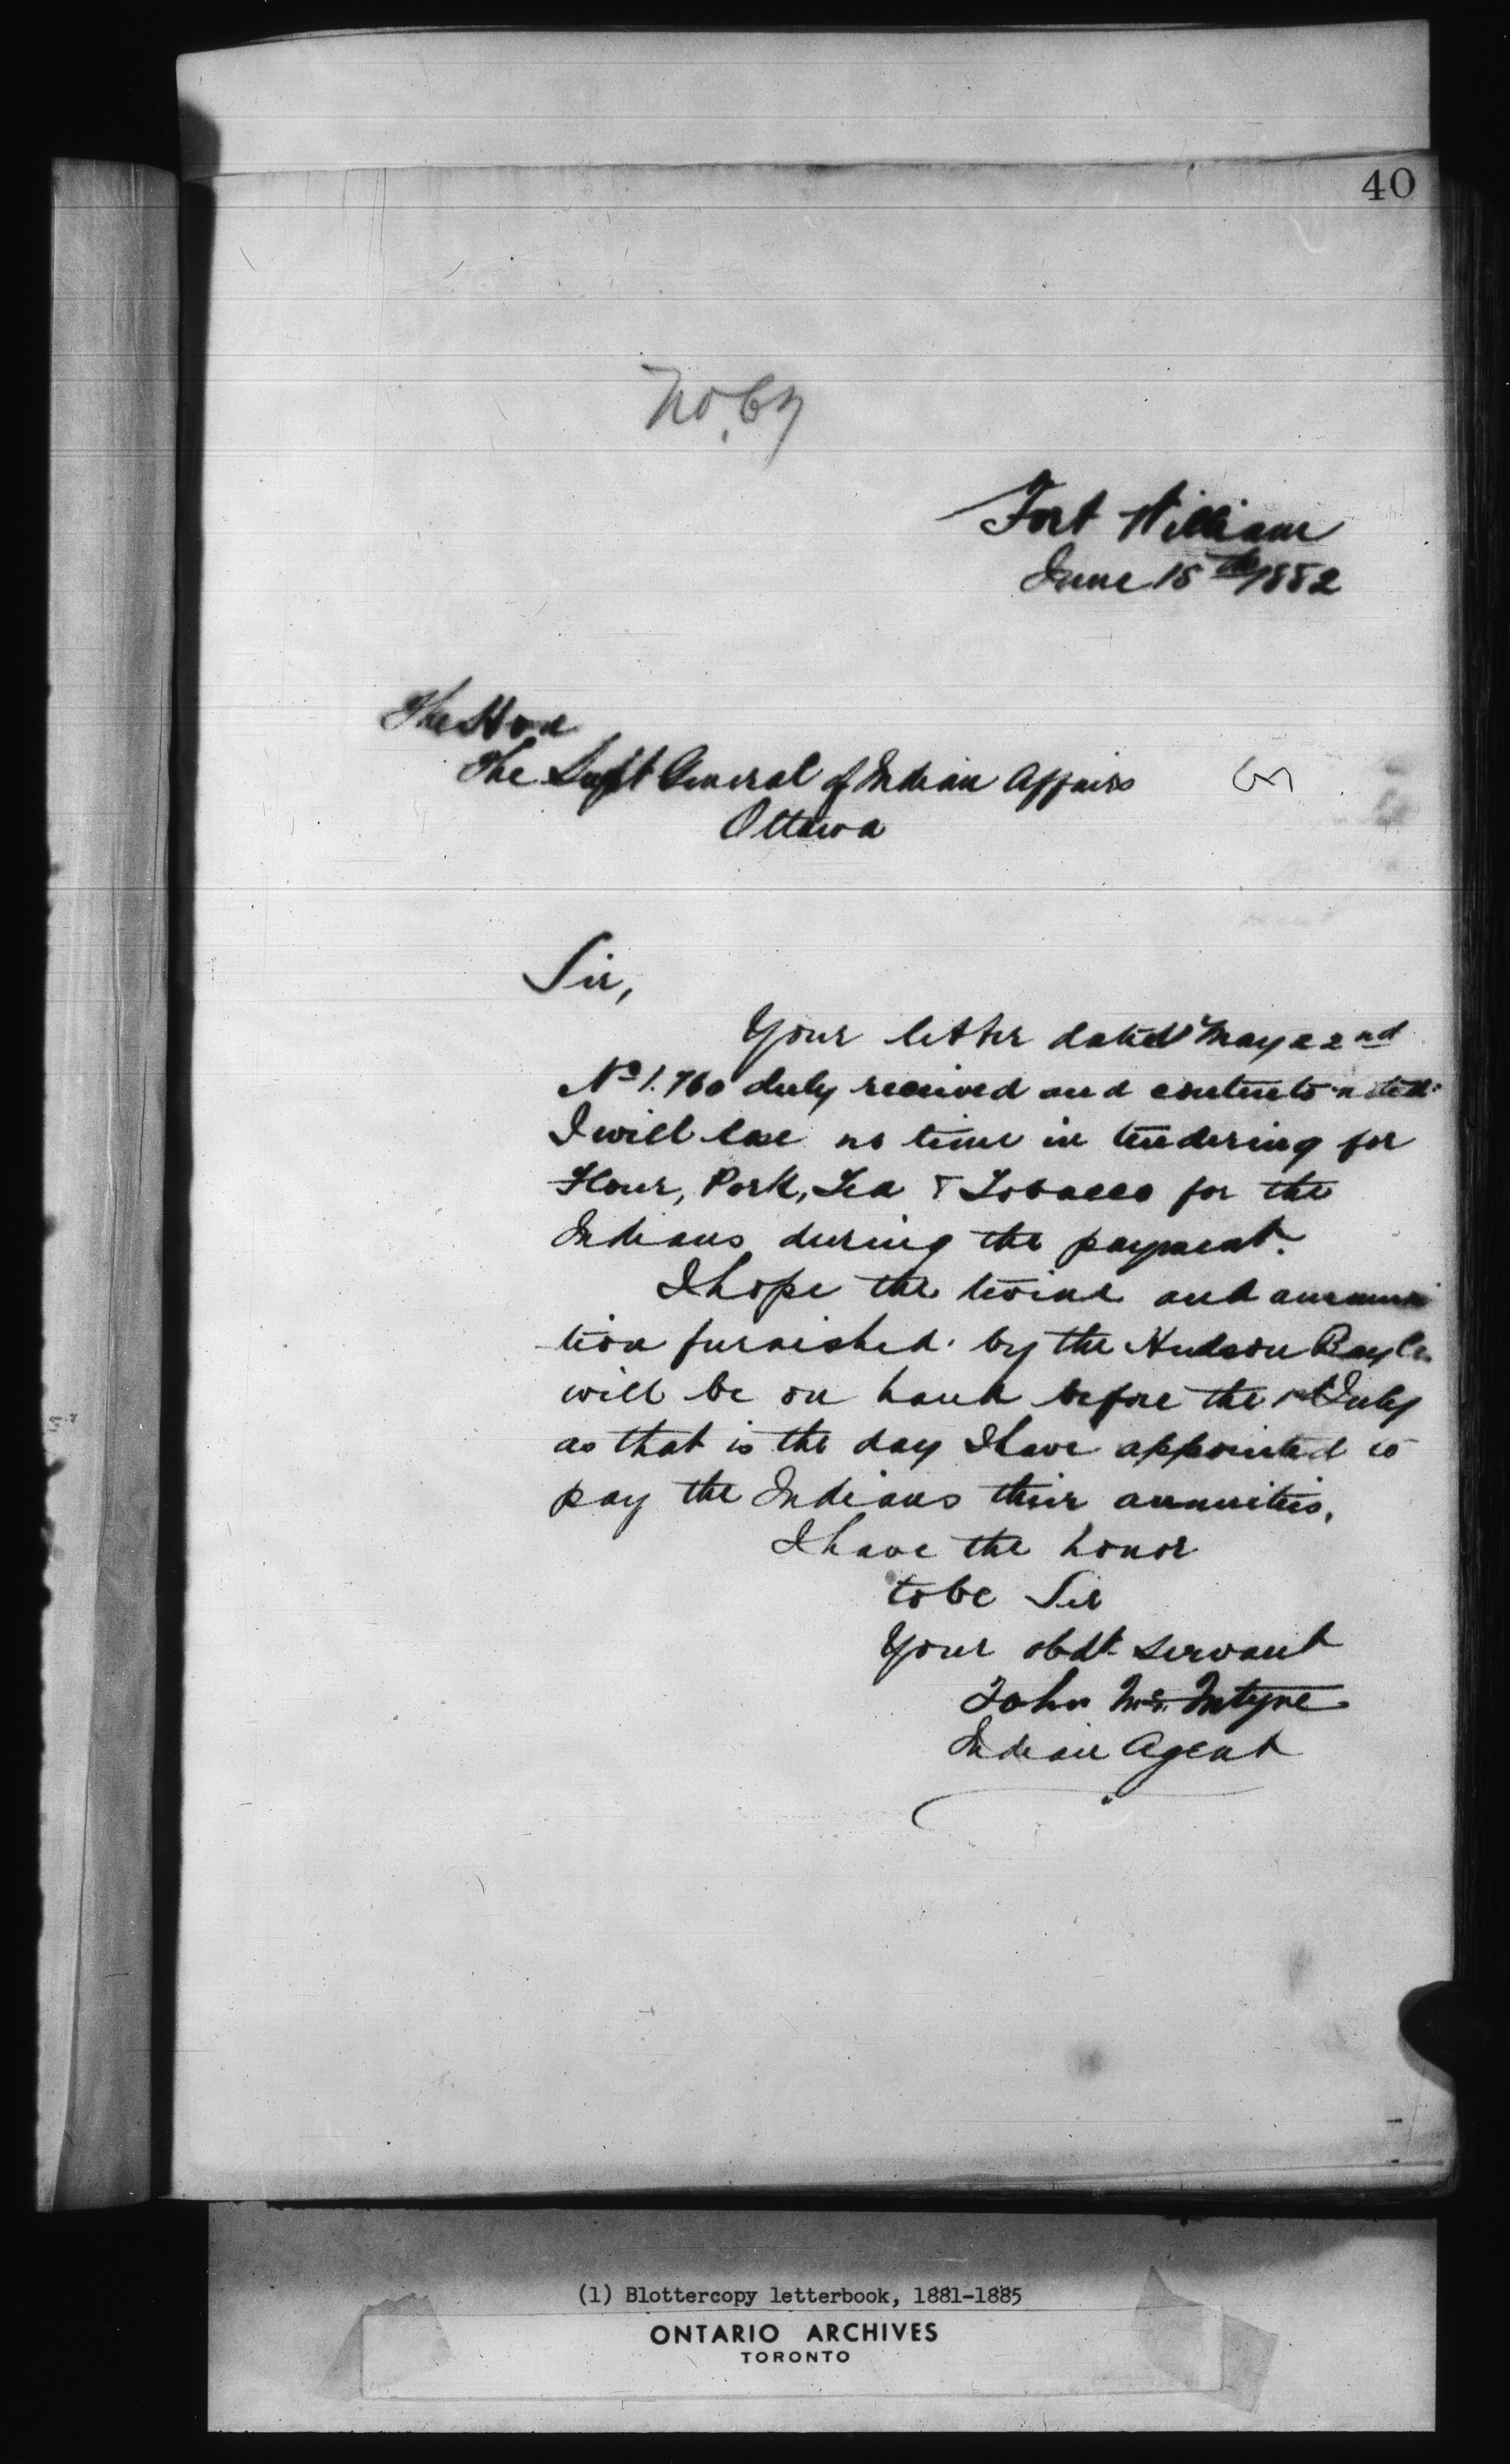 40
No. 67
Fort William
June 15th 1882
The Hon
The Supt General of Indian Affairs
Ottawa
Sir,
Your letter dated May 22nd
No 1.760 duly received and contents noted.
I will lose no time in tendering for
Flour, Pork, Tea & Tobacco for the
Indians during the payment.
I hope the twine and ammuni
tion furnished by the Hudson Bay Co.
will be on hand before the 1st July
as that is the day I have appointed to
pay the Indians their annuities.
I have the honor
to be Sir
Your obdt servant
John McIntyre
Indian Agent
(1) Blottercopy letterbook, 1881-1885
ONTARIO ARCHIVES
TORONTO